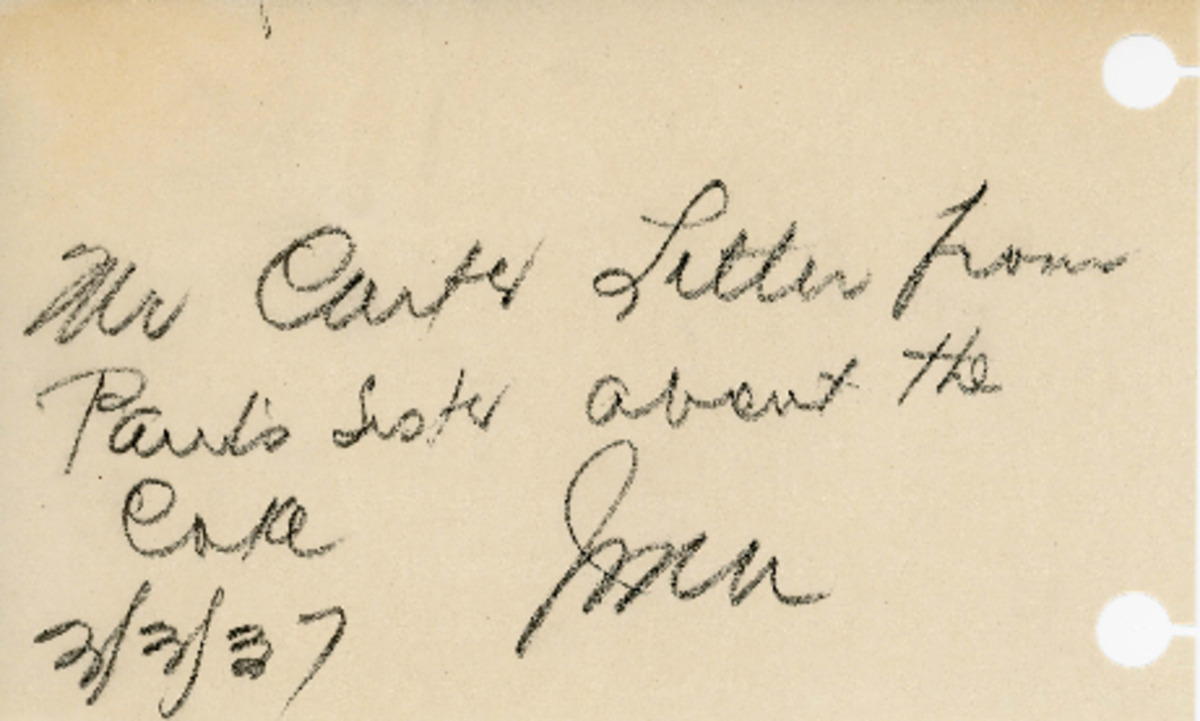 Mr Carter Letter from
Paul's Sister about the
Cake
3/3/37